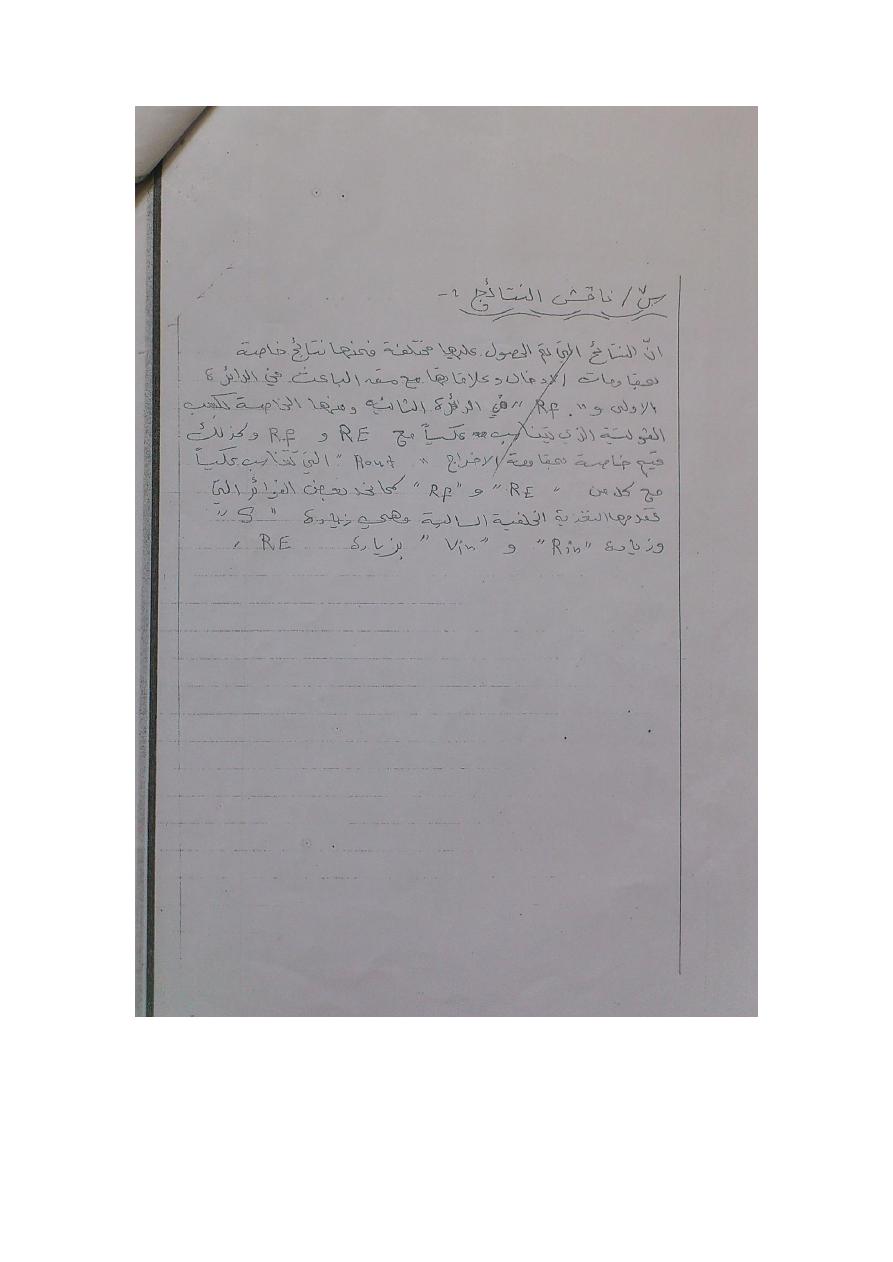 س٢/ ناقش النتائج :-
انّ النتائج التي تم الحصول عليها مختلفة فمنها نتائج خاصة
بمقاومات الادخال وعلاقاتها مع الباعث في الدائرة
الاولى و "RF" في الدائرة الثانية ومنها الخاصة بكسب
الفولتية الذي يتناسب عكسياً مع RE و RF وكذلك
قيم خاصة بمقاومة الاخراج "Rout" التي تتناسب عكسياً
مع كل من "RE" و "RF" كما نجد بعض الفوائد التي
تقدمها التغذية الخلفية السالبة وهي زيادة "S"
وزيادة "Rin" و "Vin" بزيادة RE .